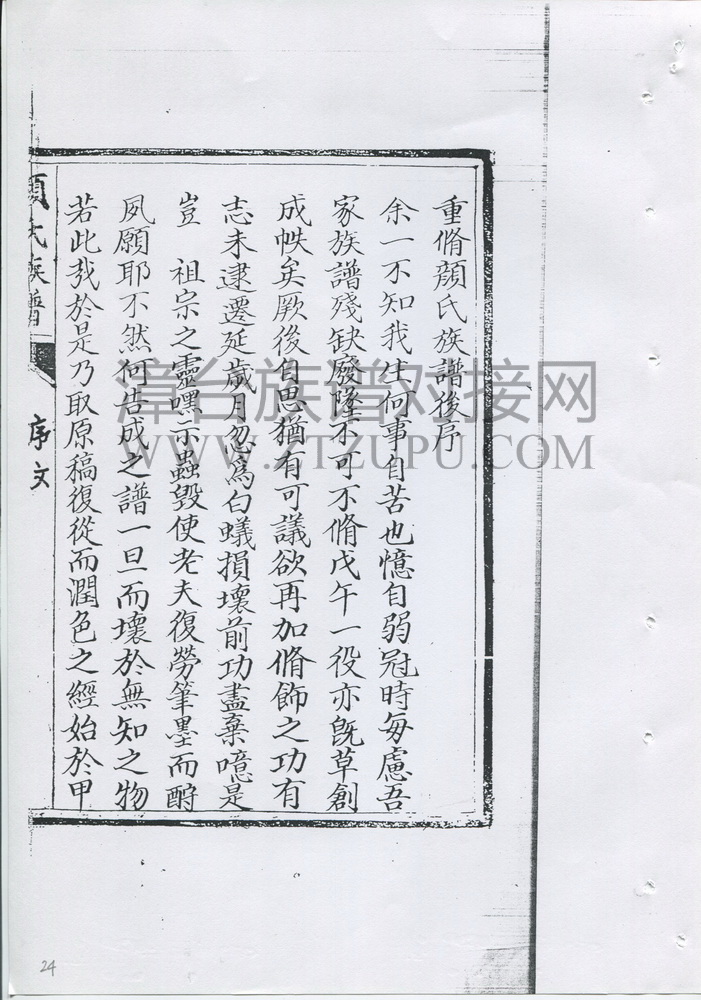 重脩顔氏族譜後序
余一不知我生何事自苦也憶自弱冠時每慮吾
家族譜殘缺廢墜不可不脩戊午一役亦既草創
成帙矣厥後自思猶有可議欲再加脩飾之功有
志未逮遷延歲月忽為白蟻損壞前功盡棄噫是
豈 祖宗之靈嘿示蟲毀使老夫復勞筆墨而酹
夙願耶不然何告成之譜一旦而壞於無知之物
若此哉於是乃取原稿復從而潤色之經始於甲
顔氏族譜
序文
漳台族谱对接网
WWW.ZTZUPU.COM
24